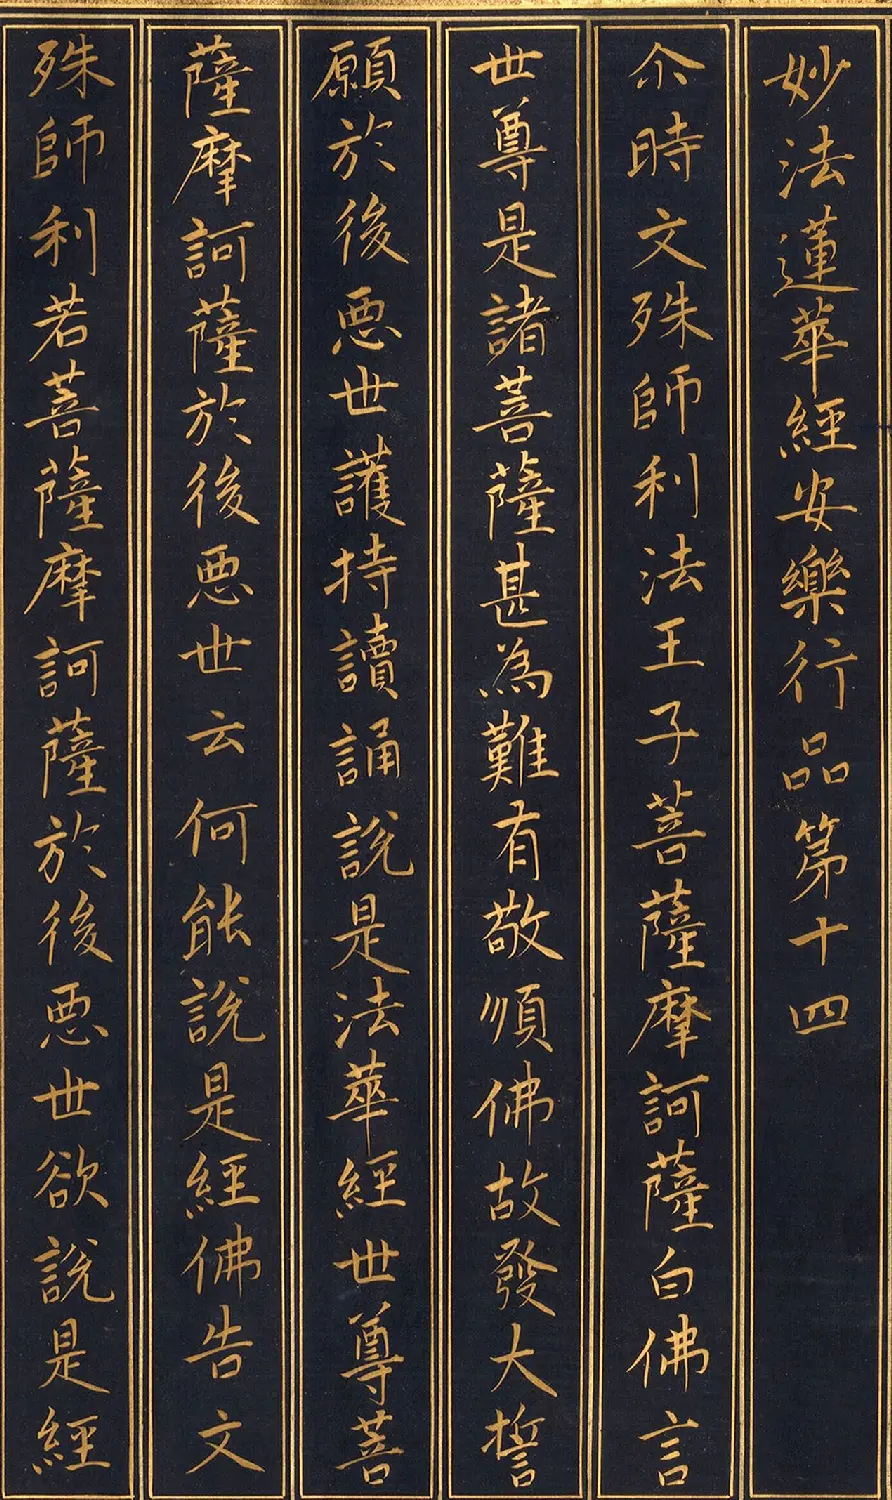 妙法蓮華經安樂行品第十四
尒時文殊師利法王子菩薩摩訶薩白佛言
世尊是諸菩薩甚為難有敬順佛故發大誓
願於後惡世護持讀誦說是法華經世尊菩
薩摩訶薩於後惡世云何能說是經佛告文
殊師利若菩薩摩訶薩於後惡世欲說是經